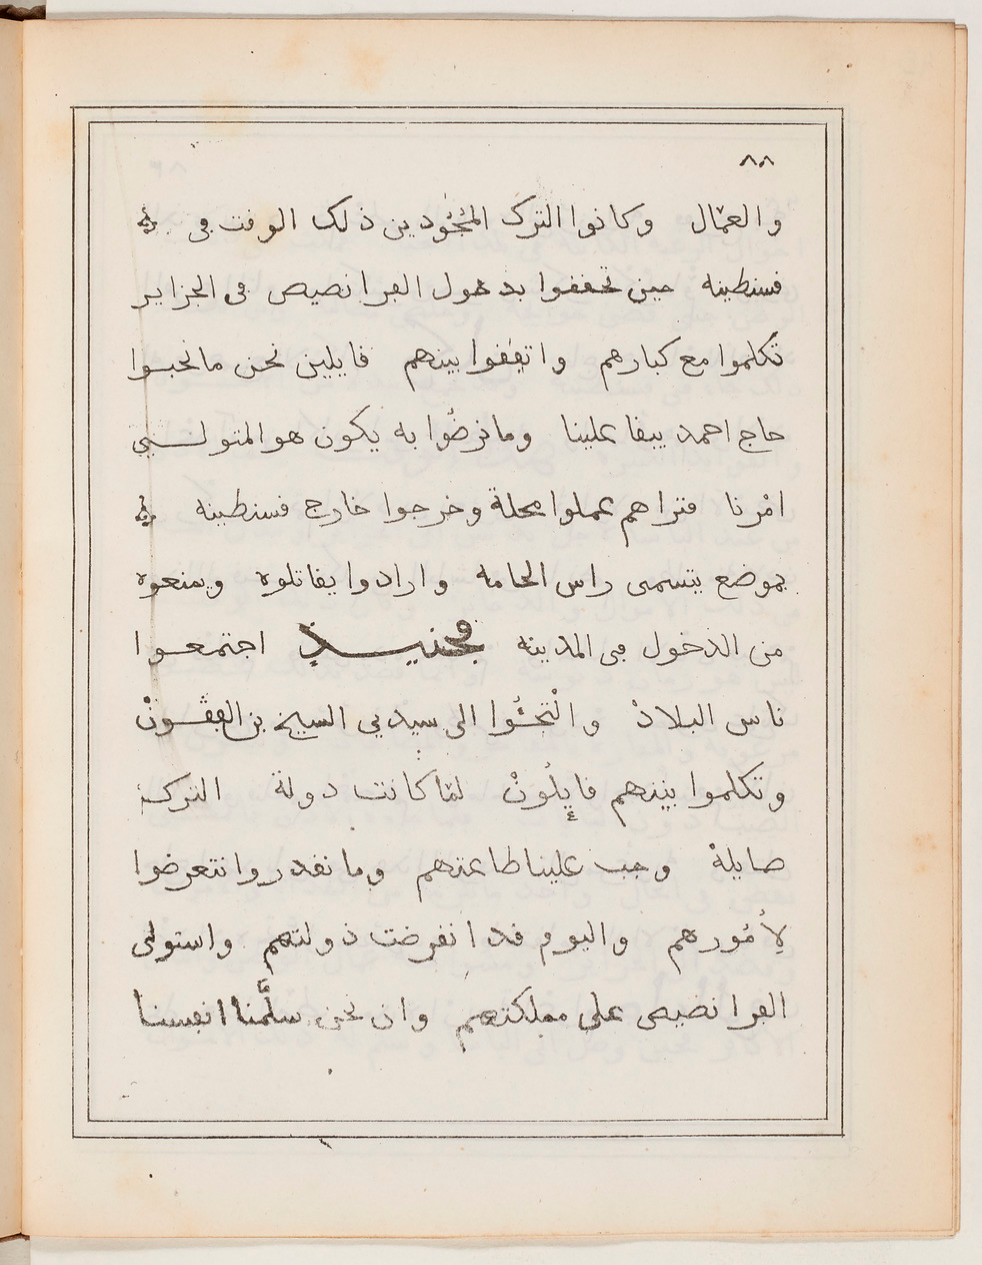 ٨٨
والعمّال وكانوا الترك المَجُودين ذلك الوقت في
قسنطينه حين تحققوا بدخول الفرانصيص في الجزاير
تكلموا مع كبارهم واتفقوا بينهم قايلين نحن مانحبوا
حاج احمد يبقا علينا ومانرضُوا به يكون هو المتولي
امْرنا فتراهم عملوا محلة وخرجوا خارج قسنطينه
بموضع يتسمى راس الحامه وارادوا يقاتلوه ويمنعوه
من الدخول في المدينه فحنيـيـذٍ اجتمعوا
ناس البلادْ والْتجَئُوا الى سيدي الشيخ بن الفڨـونْ
وتكلموا بينهم قايِلُونْ لمّا كانت دولة الترك
صايلةْ وجب علينا طاعتهم وما نقدروا نتعرضوا
لأمُورهم واليوم قد انقرضت دولتهم واستولى
الفرانصيص على مملكتهم وان نحن سلَّمنا انفسنا